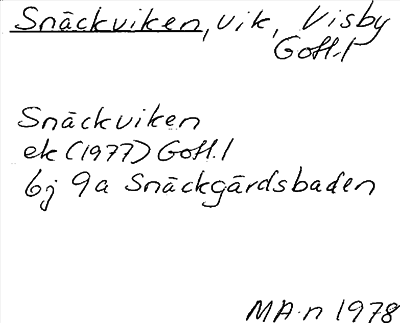 Snäckviken, vik, Visby
Gotl. l
Snäckviken
ek (1977) Gotl. l
6j 9a Snäckgärdsbaden
MA·n 1978